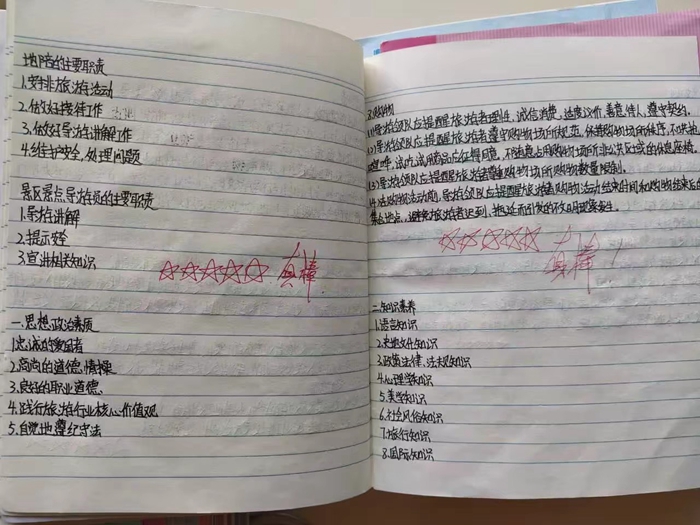 地陪的主要职责
1.安排旅游活动
2.做好接待工作
3.做好导游讲解工作
4.维护安全,处理问题
景区景点导游员的主要职责
1.导游讲解
2.提示安全
3.宣讲相关知识
☆☆☆☆☆ 真棒
一.思想政治素质
1.忠诚的爱国者
2.高尚的道德情操
3.良好的职业道德
4.践行旅游行业核心价值观
5.自觉地遵纪守法
购物
(1)导游领队应提醒旅游者理性、诚信消费,适度议价,善意待人,遵守契约。
(2)导游领队应提醒旅游者遵守购物场所规范,保持购物场所秩序,不哄抢
喧哗,试吃试用商品应征得同意,不随意占用购物场所非公共区域的休息座椅。
(3)导游领队应提醒旅游者尊重购物场所购物数量限制。
(4)在购物活动前,导游领队应提醒旅游者购物活动结束时间和购物结束后的
集合地点,避免旅游者迟到、拖延而引发的不文明现象发生。
☆☆☆☆☆ 真棒!
二.知识素养
1.语言知识
2.史地文化知识
3.政策法律、法规知识
4.心理学知识
5.美学知识
6.社会风俗知识
7.旅行知识
8.国际知识